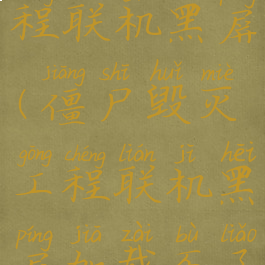 程联机黑屏
jiāng shī huǐ miè
（僵尸毁灭
gōng chéng lián jī hēi
工程联机黑
píng jiā zǎi bù liǎo